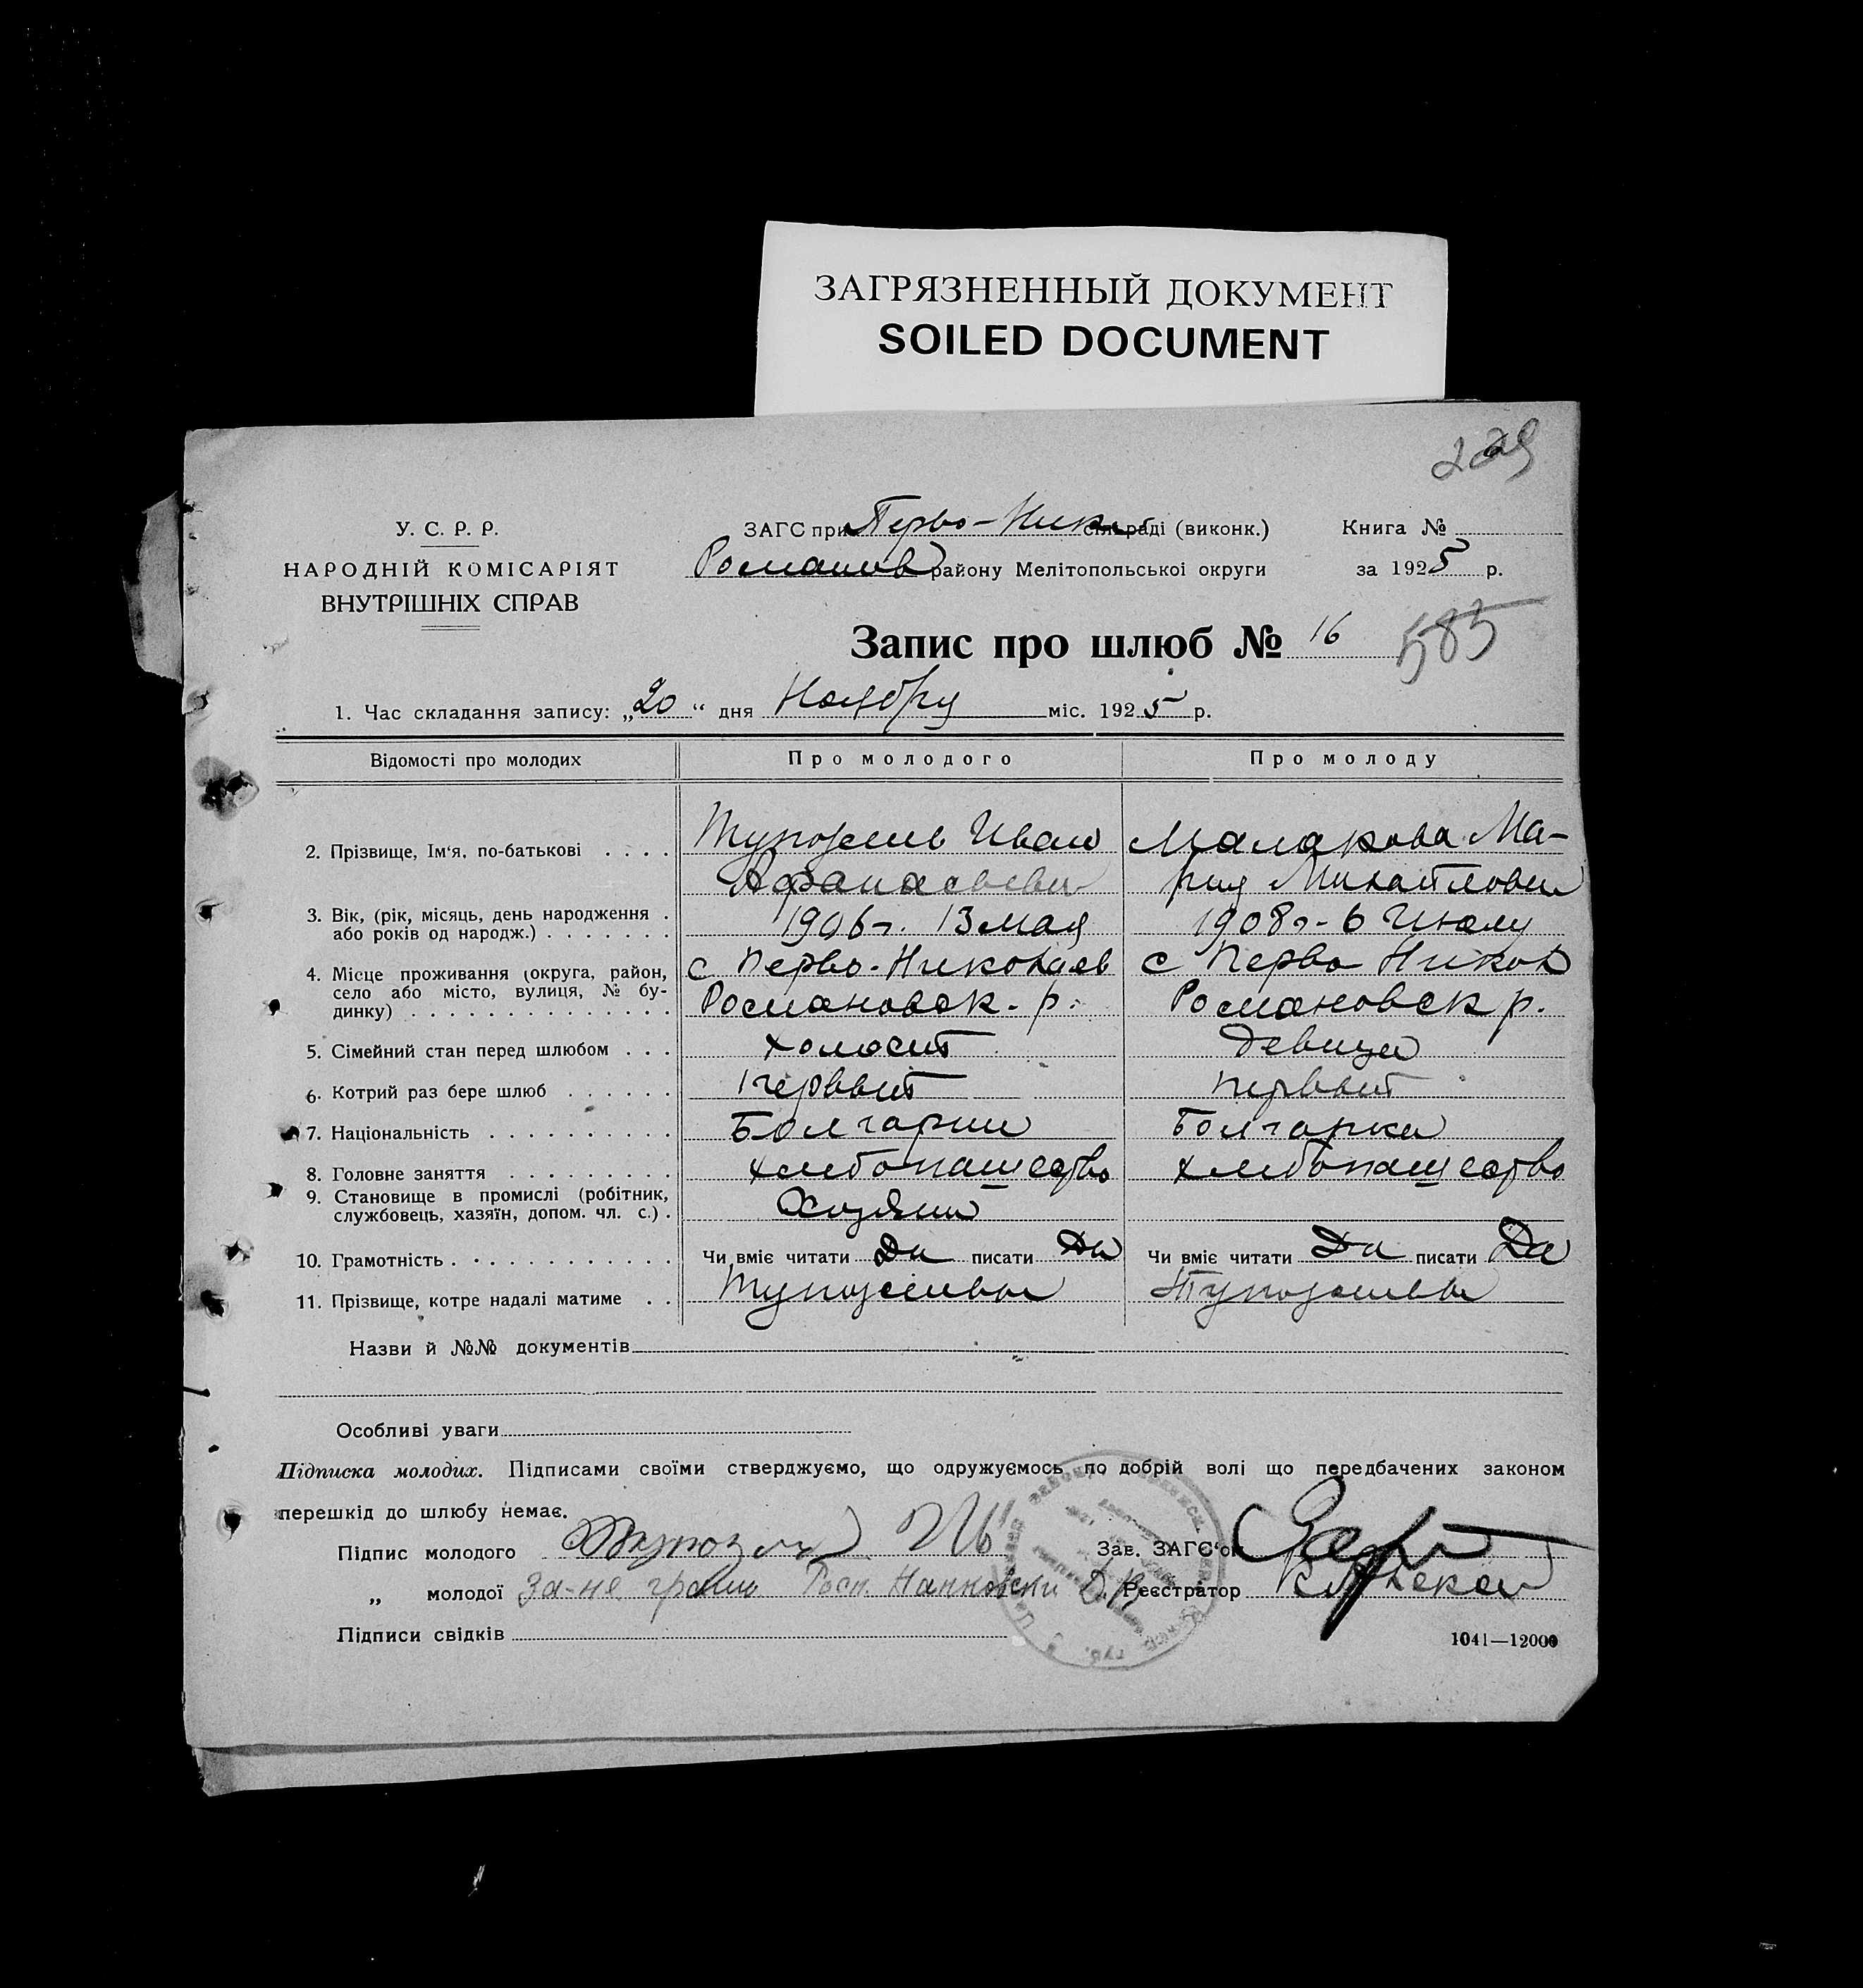 ЗАГРЯЗНЕННЫЙ ДОКУМЕНТ
SOILED DOCUMENT
229
У. С. Р. Р.
НАРОДНІЙ КОМІСАРІЯТ
ВНУТРІШНІХ СПРАВ
ЗАГС при Перво-Ник сільраді (виконк.)
Романов району Мелітопольської округи
Книга №
за 1925 р.
Запис про шлюб № 16
585
1. Час складання запису: „20“ дня Ноябру міс. 1925 р.
Відомості про молодих Про молодого Про молоду
2. Прізвище, Ім'я, по-батькові . . . . Иван Малакова Ма-
рия Михайловн
3. Вік, (рік, місяць, день народження . 1906 г. 13 мая 1908 г - 6 Июлу
або років од народж.) . . . . . . .
4. Місце проживання (округа, район, с Перво-Николаев с Перво Никол
село або місто, вулиця, № бу- Романовск. р. Романовск р.
динку) . . . . . . . . . . . . . .
5. Сімейний стан перед шлюбом . . . холост Девица
6. Котрий раз бере шлюб . . . . . . первый первый
7. Національність . . . . . . . . . . Болгарин Болгарка
8. Головне заняття . . . . . . . . . хлебопашество хлебопашество
9. Становище в промислі (робітник,
службовець, хазяїн, допом. чл. с.) . Хозяин
10. Грамотність . . . . . . . . . . . . Чи вміє читати Да писати Да Чи вміє читати Да писати Да
11. Прізвище, котре надалі матиме . .
Назви й №№ документів
Особливі уваги
Підписка молодих. Підписами своїми стверджуємо, що одружуємось по добрій волі що передбачених законом
перешкід до шлюбу немає.
Підпис молодого Зав. ЗАГС'ом
„ молодої За-не грамо Реєстратор
Підписи свідків
1041—12000